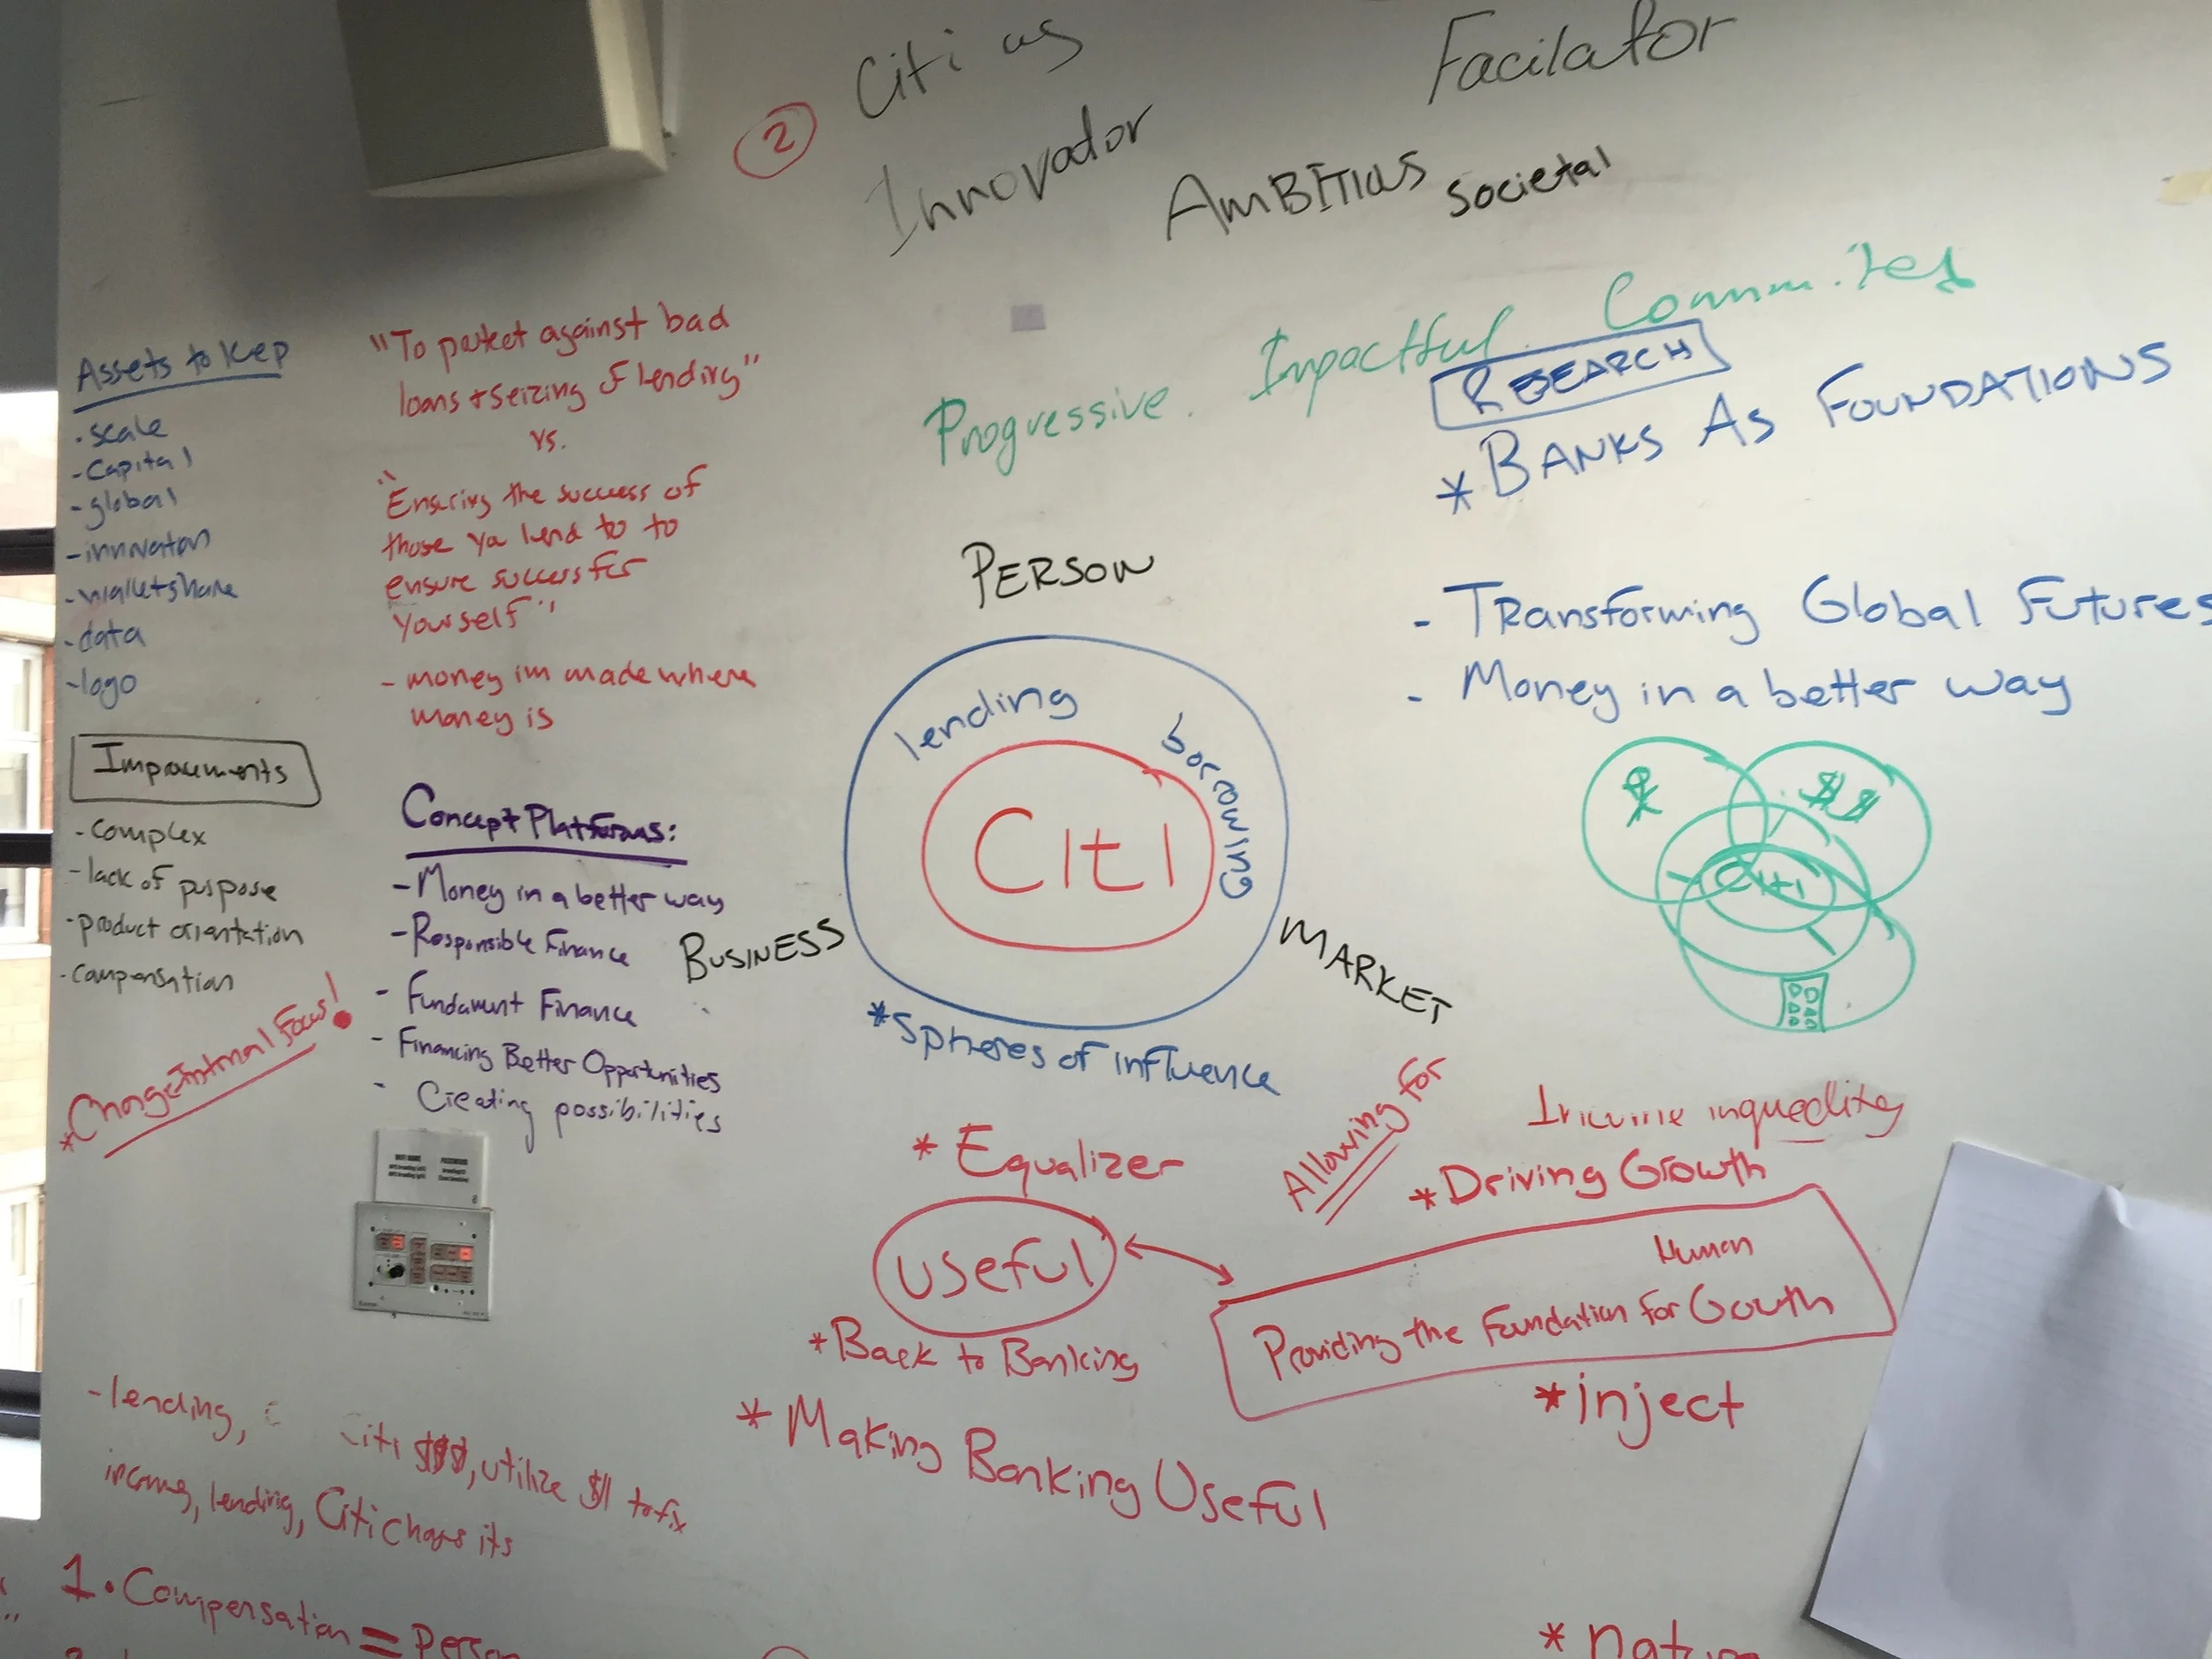 2
Citi as
Innovador
Facilator
AmBiTiuS societal
Progressive. Impactful. Committed
RESEARCH
* BANKS AS FOUNDATIONS
- TRansforming Global Futures
- Money in a better way
Assets to keep
- scale
- Capital
- global
- innovaton
- walletshare
- data
- logo
"To protect against bad
loans + seizing of lending"
vs.
"Ensuring the success of
those you lend to to
ensure success for
yourself"
- money im made where
money is
Improvements
- complex
- lack of purpose
- product orientation
- compensation
* Change Internal Focus!
Concept Platforms:
- Money in a better way
- Responsible Finance
- Fundament Finance
- Financing Better Opportunities
- Creating possibilities
PERSON
lending
borrowing
Citi
BUSINESS
MARKET
* Spheres of influence
$$
Citi
* Equalizer
Allowing for
Income inquedlity
* Driving Growth
useful
Human
Providing the Foundation for Gowth
* Back to Banking
* inject
* Making Banking Useful
- lending, Citi $$$, utilize $ to fix
income, lending, Citi chages its
1. Compensation = Person
* natu